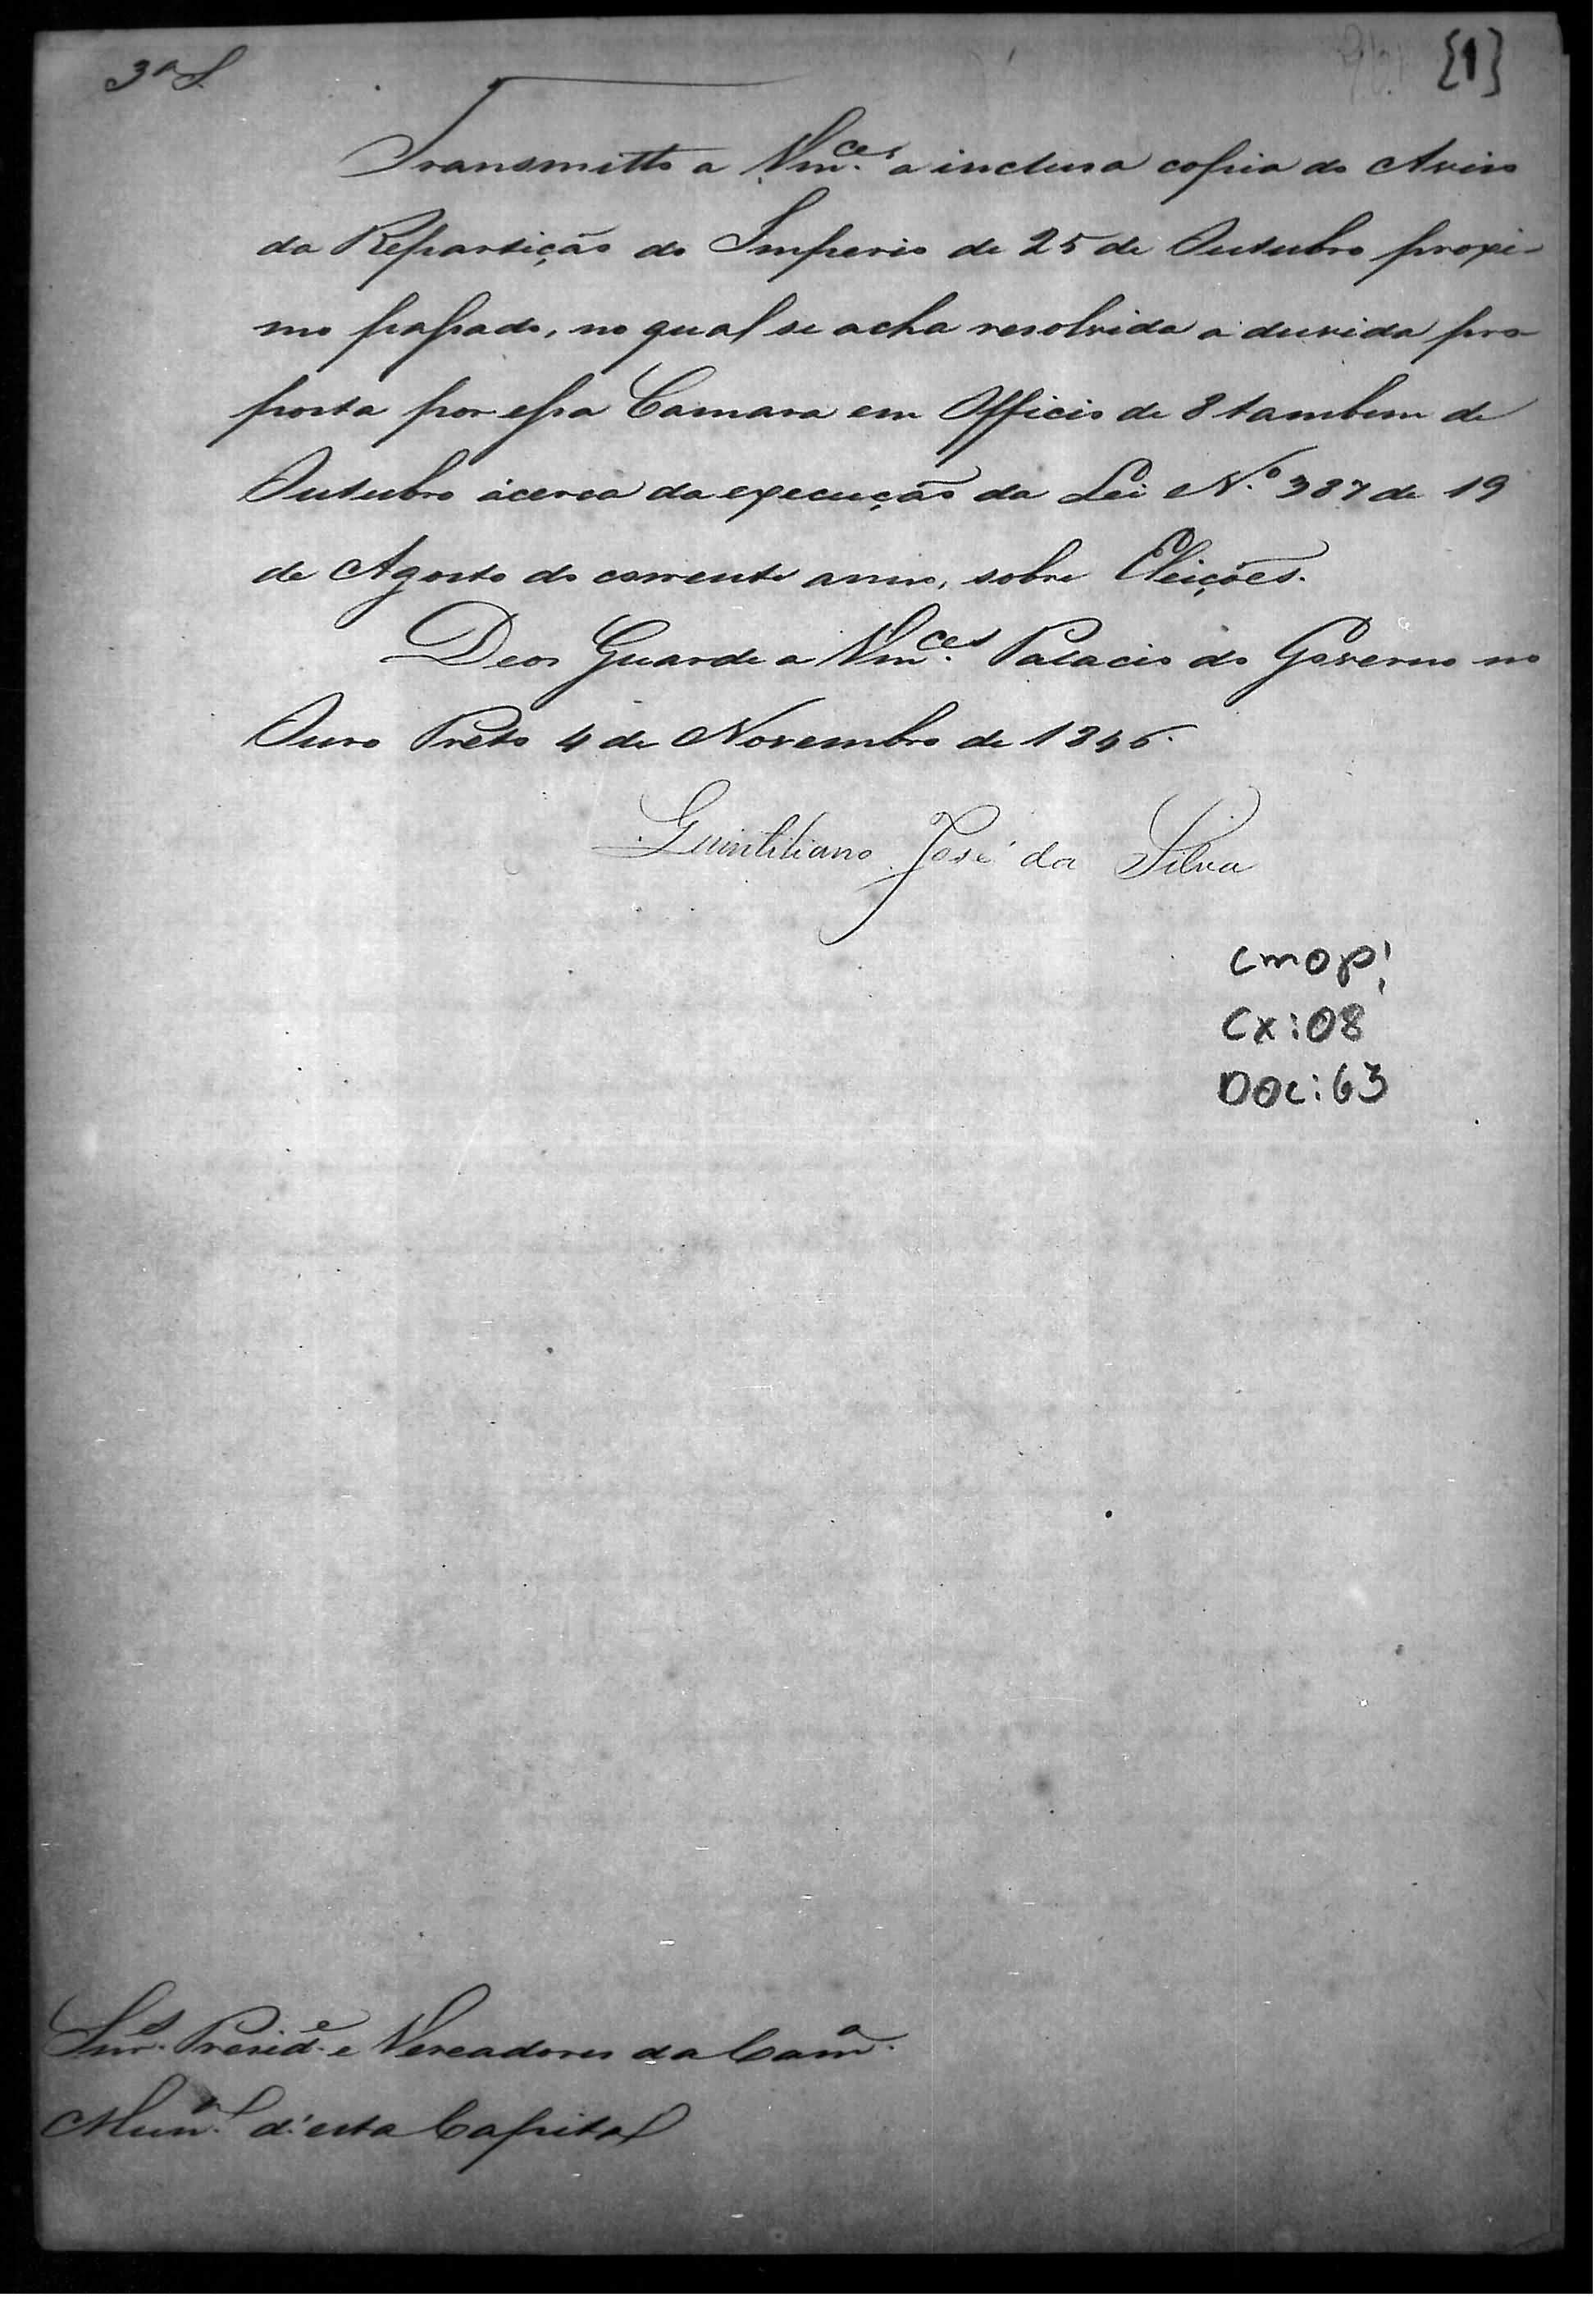 3ª S.
{1}
Transmitto a Vm.ces a inclusa copia do Aviso
da Repartição do Imperio de 25 de Outubro proxi-
mo passado, no qual se acha resolvida a duvida pro
posta por essa Camara em Officio de 8 tambem de
Outubro ácerca da execução da Lei N.º 387 de 19
de Agosto do corrente anno, sobre Eleições.
Deos Guarde a Vm.ces Palacio do Governo no
Ouro Preto 4 de Novembro de 1846.
Quintiliano José da Silva
CMOP
Cx: 08
DOC: 63
Snr.s Presid.e e Vereadores da Cam.a
Mun.al d'esta Capital